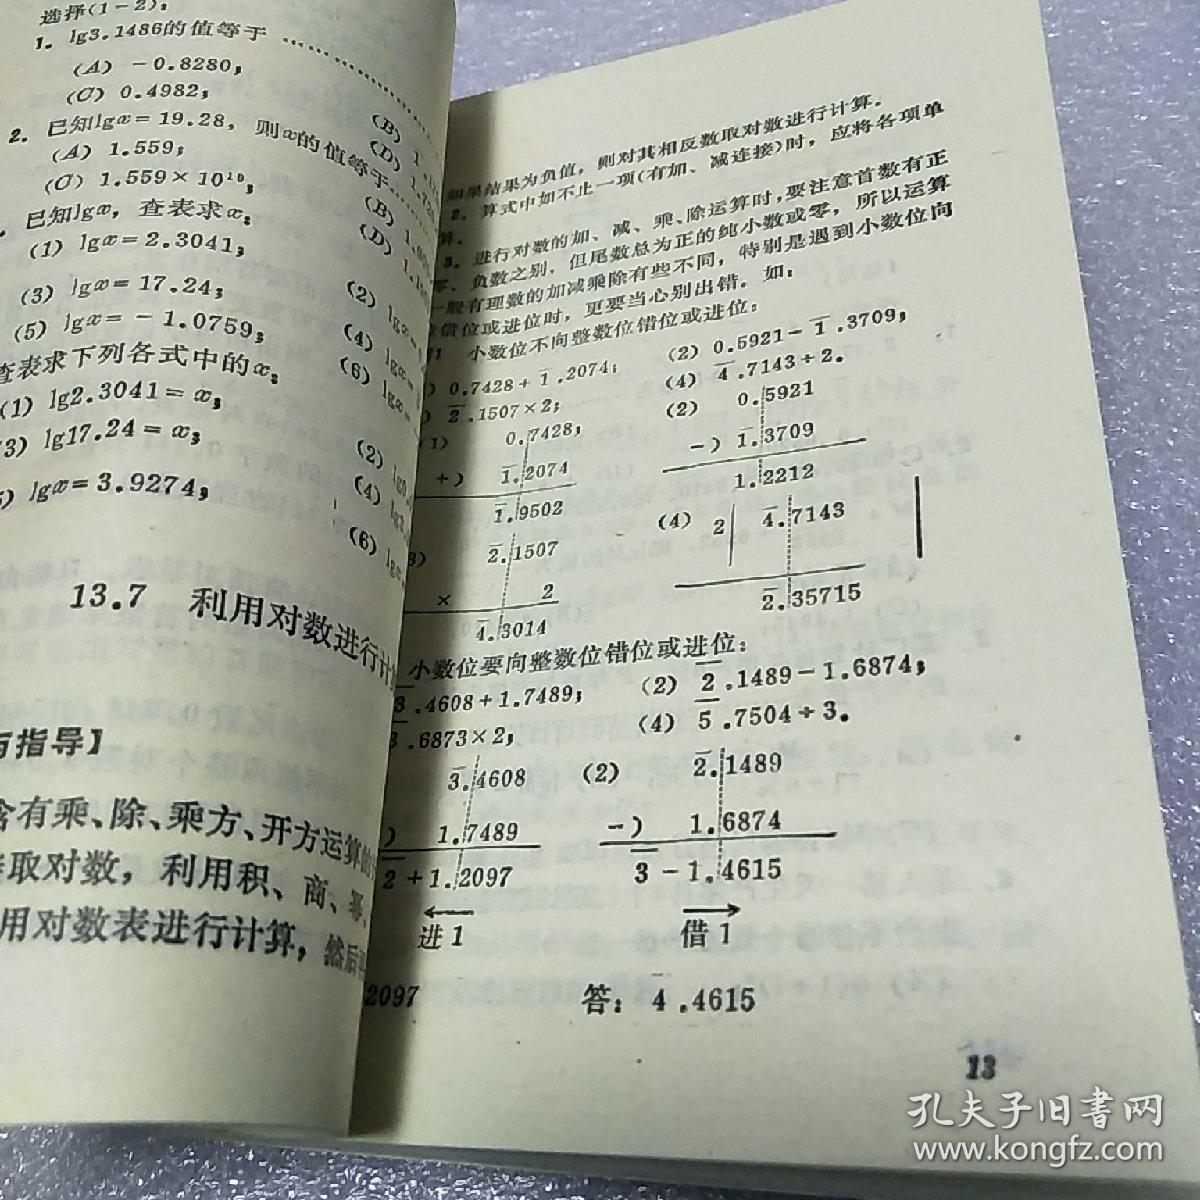 选择(1－2):
1. lg3.1486的值等于 ………………
(A) －0.8280;
(B)
(C) 0.4982;
(D) 1.
2. 已知lgx＝19.28, 则x的值等于……
(A) 1.559;
(B)
(C) 1.559×10¹⁹;
(D)
已知lgx, 查表求x:
(1) lgx＝2.3041;
(2) lgx＝
(3) lgx＝17.24;
(4) lgx＝
(5) lgx＝－1.0759;
(6) lgx＝
查表求下列各式中的x:
(1) lg2.3041＝x;
(2) lg0.
(3) lg17.24＝x;
(4) lg
5) lgx＝3.9274;
(6) lgx
13.7 利用对数进行计算
与指导】
含有乘、除、乘方、开方运算的
取对数, 利用积、商、幂、
用对数表进行计算, 然后再
如果结果为负值, 则对其相反数取对数进行计算.
2. 算式中如不止一项(有加、减连接)时, 应将各项单
算.
3. 进行对数的加、减、乘、除运算时, 要注意首数有正
零、负数之别, 但尾数总为正的纯小数或零, 所以运算
一般有理数的加减乘除有些不同, 特别是遇到小数位向
位借位或进位时, 更要当心别出错. 如:
1 小数位不向整数位错位或进位:
) 0.7428＋1̅.2074;
(2) 0.5921－1̅.3709;
) 2̅.1507×2;
(4) 4̅.7143÷2.
(1) 0.7428;
＋) 1̅.2074
1̅.9502
(2) 0.5921
－) 1̅.3709
1.2212
3) 2̅.1507
× 2
4̅.3014
(4) 2 4̅.7143
2̅.35715
小数位要向整数位错位或进位:
3̅.4608＋1.7489;
(2) 2̅.1489－1.6874;
3̅.6873×2;
(4) 5̅.7504÷3.
3̅.4608
) 1.7489
2̅＋1.2097
进1
2097
(2) 2̅.1489
－) 1.6874
3̅－1.4615
借1
答: 4̅.4615
13
孔夫子旧书网
www.kongfz.com